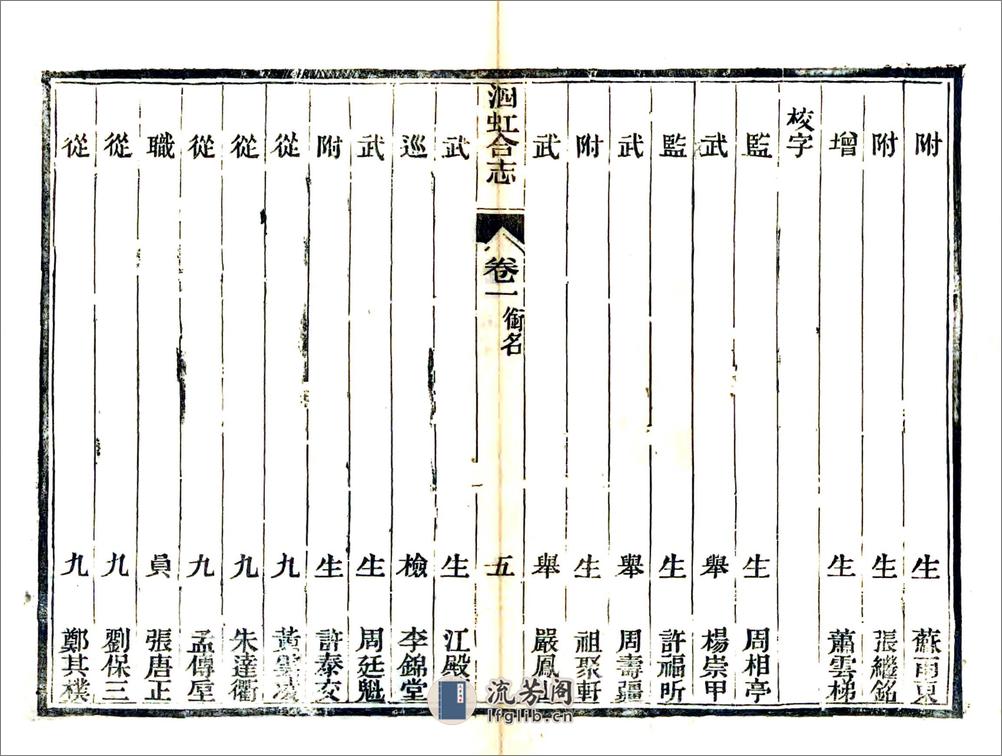 附生蘇雨東
附生張繼銘
增生蕭雲梯
校字
監生周相亭
武舉楊崇甲
監生許福昕
武舉周壽疆
附生祖聚軒
武舉嚴鳳
泗虹合志 卷一 銜名 五
武生江殿
巡檢李錦堂
武生周廷魁
附生許泰交
從九黃雲凌
從九朱達衢
從九孟傳屋
職員張唐正
從九劉保三
從九鄭其樸
流芳阁
lfglib.cn